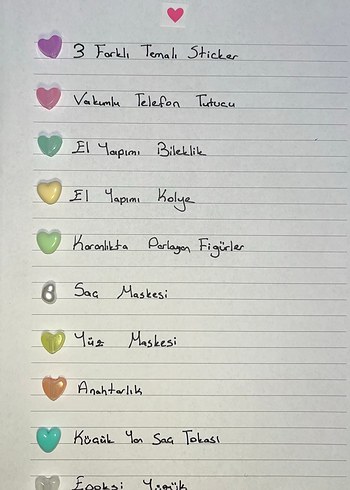 3 Farklı Temalı Sticker
Vakumlu Telefon Tutucu
El Yapımı Bileklik
El Yapımı Kolye
Karanlıkta Parlayan Figürler
Saç Maskesi
Yüz Maskesi
Anahtarlık
Küçük Yan Saç Tokası
Epoksi Yüzük